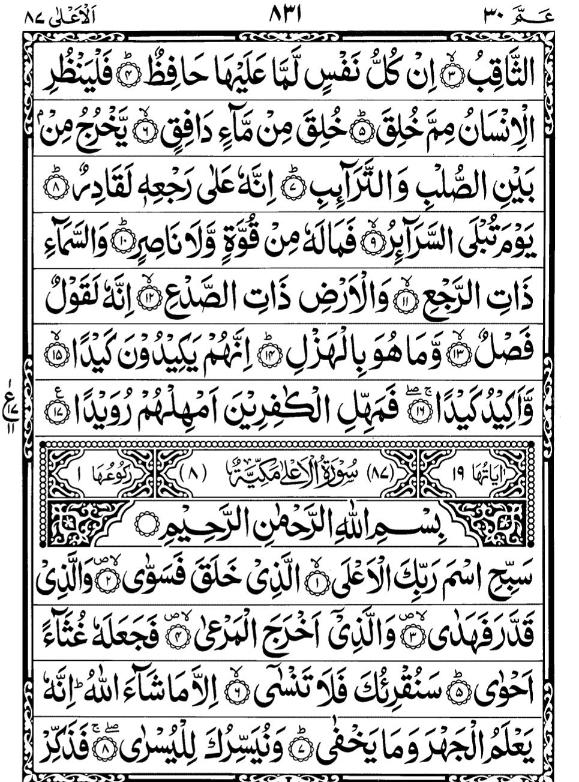 عَمَّ ٣٠ ٨٣١ اَلْاَعْلٰى ٨٧
الثَّاقِبُ ۙ﴿٣﴾ اِنْ كُلُّ نَفْسٍ لَّمَّا عَلَيْهَا حَافِظٌ ؕ﴿٤﴾ فَلْيَنْظُرِ
الْاِنْسَانُ مِمَّ خُلِقَ ؕ﴿٥﴾ خُلِقَ مِنْ مَّآءٍ دَافِقٍ ۙ﴿٦﴾ يَّخْرُجُ مِنْۢ
بَيْنِ الصُّلْبِ وَالتَّرَآىِٕبِ ؕ﴿٧﴾ اِنَّهٗ عَلٰى رَجْعِهٖ لَقَادِرٌ ؕ﴿٨﴾
يَوْمَ تُبْلَى السَّرَآىِٕرُ ۙ﴿٩﴾ فَمَا لَهٗ مِنْ قُوَّةٍ وَّلَا نَاصِرٍ ؕ﴿١٠﴾ وَالسَّمَآءِ
ذَاتِ الرَّجْعِ ۙ﴿١١﴾ وَالْاَرْضِ ذَاتِ الصَّدْعِ ۙ﴿١٢﴾ اِنَّهٗ لَقَوْلٌ
فَصْلٌ ۙ﴿١٣﴾ وَّمَا هُوَ بِالْهَزْلِ ؕ﴿١٤﴾ اِنَّهُمْ يَكِيْدُوْنَ كَيْدًا ۙ﴿١٥﴾
وَّاَكِيْدُ كَيْدًا ۚۖ﴿١٦﴾ فَمَهِّلِ الْكٰفِرِيْنَ اَمْهِلْهُمْ رُوَيْدًا ﴿١٧﴾ ع
اٰيَاتُهَا ١٩ (٨٧) سُوْرَةُ الْاَعْلٰى مَكِّيَّةٌ (٨) رُكُوْعُهَا ١
بِسْمِ اللّٰهِ الرَّحْمٰنِ الرَّحِيْمِ
سَبِّحِ اسْمَ رَبِّكَ الْاَعْلَى ۙ﴿١﴾ الَّذِيْ خَلَقَ فَسَوّٰى ۪ۙ﴿٢﴾ وَالَّذِيْ
قَدَّرَ فَهَدٰى ۪ۙ﴿٣﴾ وَالَّذِيْۤ اَخْرَجَ الْمَرْعٰى ۪ۙ﴿٤﴾ فَجَعَلَهٗ غُثَآءً
اَحْوٰى ؕ﴿٥﴾ سَنُقْرِئُكَ فَلَا تَنْسٰۤى ۙ﴿٦﴾ اِلَّا مَا شَآءَ اللّٰهُ ؕ اِنَّهٗ
يَعْلَمُ الْجَهْرَ وَمَا يَخْفٰى ؕ﴿٧﴾ وَنُيَسِّرُكَ لِلْيُسْرٰى ۚۖ﴿٨﴾ فَذَكِّرْ